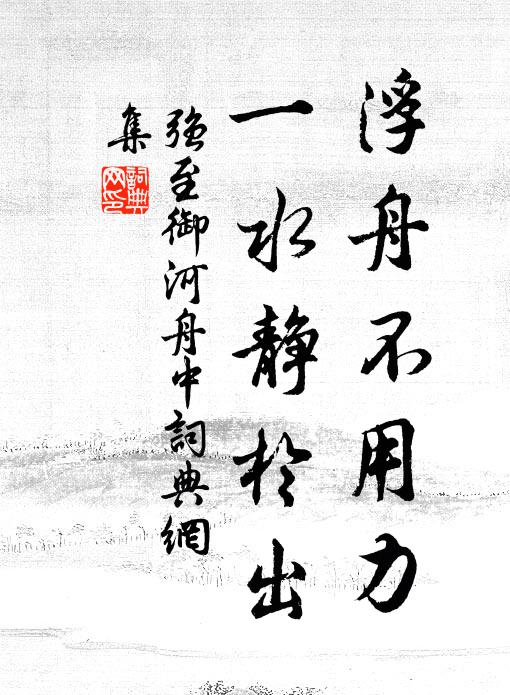 浮舟不用力
一水静於出
強至御河舟中詞典網
集
詞典
网印